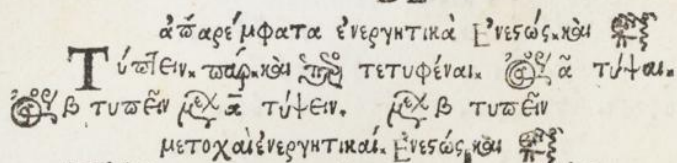 ἀπαρέμφατα ἐνεργητικὰ Ἐνεϛώς. καὶ
Τύπτειν. παρ. καὶ τετυφέναι. ᾱ τύψαι.
β τυπεῖν μελ ᾱ τύψειν. μελ β τυπεῖν
μετοχαὶ ἐνεργητικαί. Ἐνεϛώς καὶ